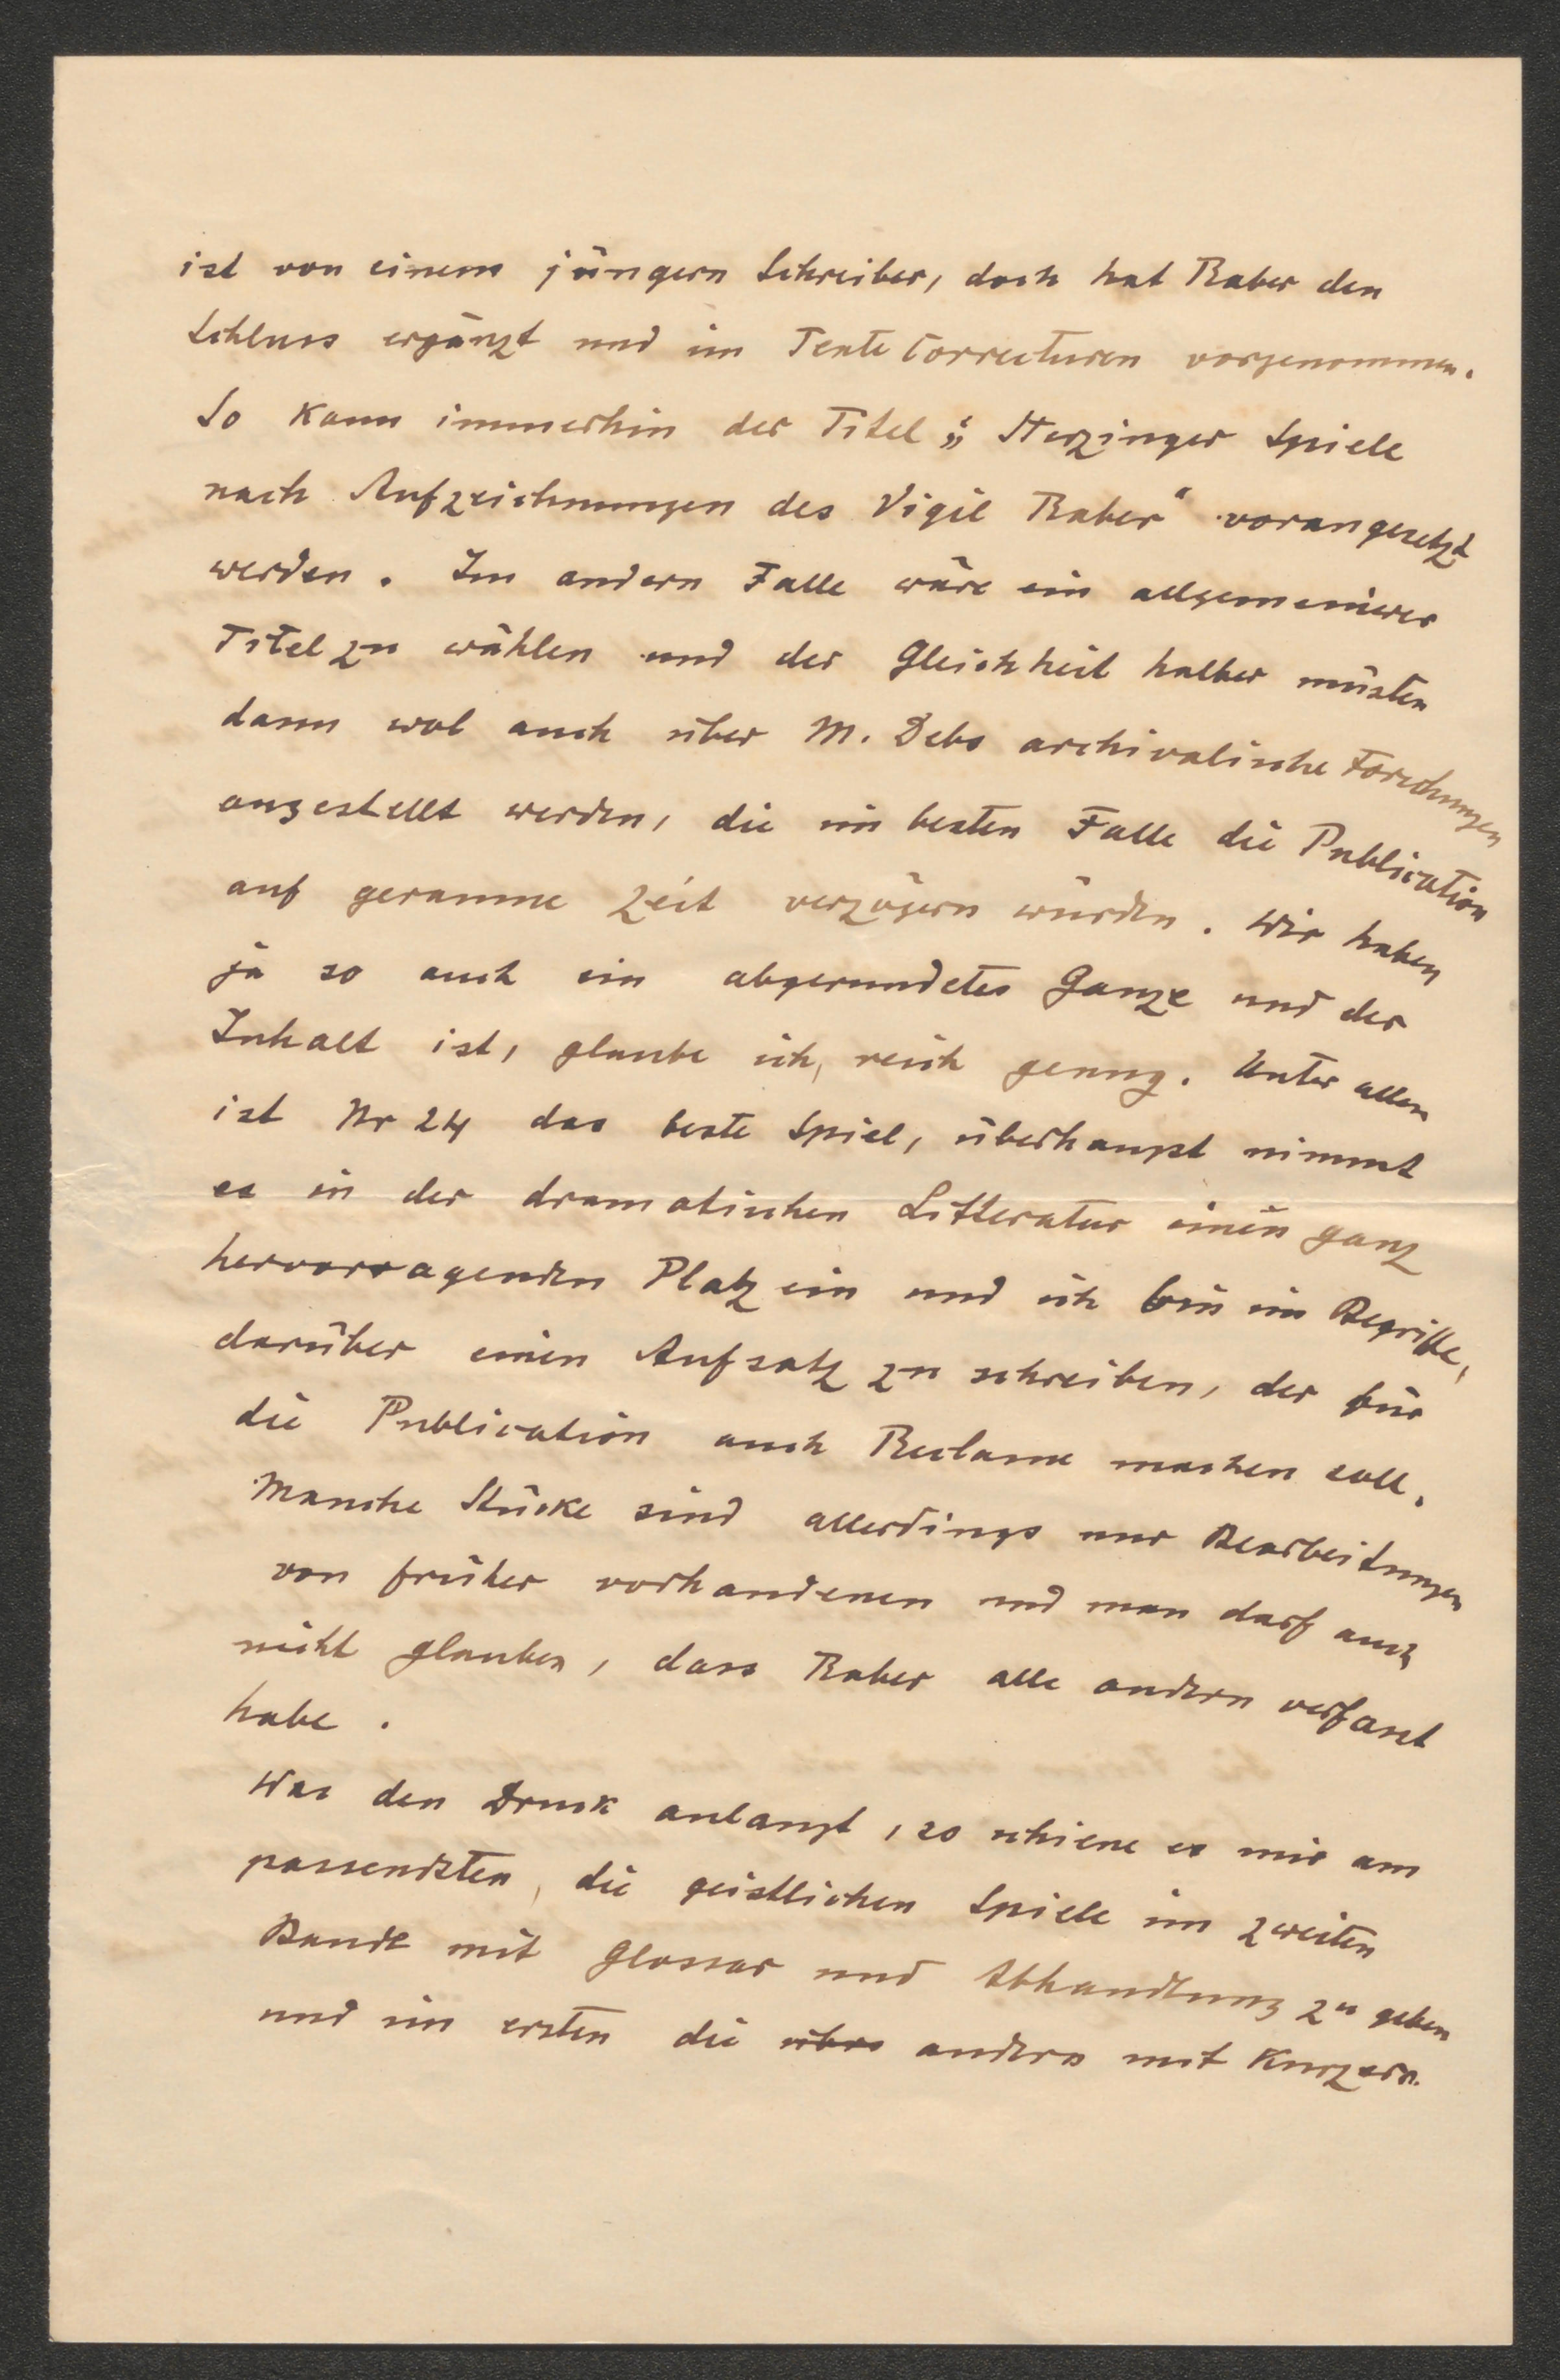 ist von einem jüngern Schreiber, doch hat Raber den
Schluss ergänzt und im Texte Correcturen vorgenommen.
So kann immerhin der Titel „Sterzinger Spiele
nach Aufzeichnungen des Vigil Raber“ vorangesetzt
werden. Im andern Falle wäre ein allgemeinerer
Titel zu wählen und der Gleichheit halber müsten
dann wol auch über M. Debs archivalische Forschungen
angestellt werden, die im besten Falle die Publication
auf geraume Zeit verzögern würden. Wir haben
ja so auch ein abgerundetes Ganze und der
Inhalt ist, glaube ich, reich genug. Unter allen
ist Nr 24 das beste Spiel, überhaupt nimmt
es in der dramatischen Litteratur einen ganz
hervorragenden Platz ein und ich bin im Begriffe,
darüber einen Aufsatz zu schreiben, der für
die Publication auch Reclame machen soll.
Manche Stücke sind allerdings nur Bearbeitungen
von früher vorhandenen und man darf auch
nicht glauben, dass Raber alle andern verfasst
habe.
Was den Druck anlangt, so schiene es mir am
passendsten, die geistlichen Spiele im zweiten
Bande mit Glossar und Abhandlung zu geben
und im ersten die übri andern mit kurzern.